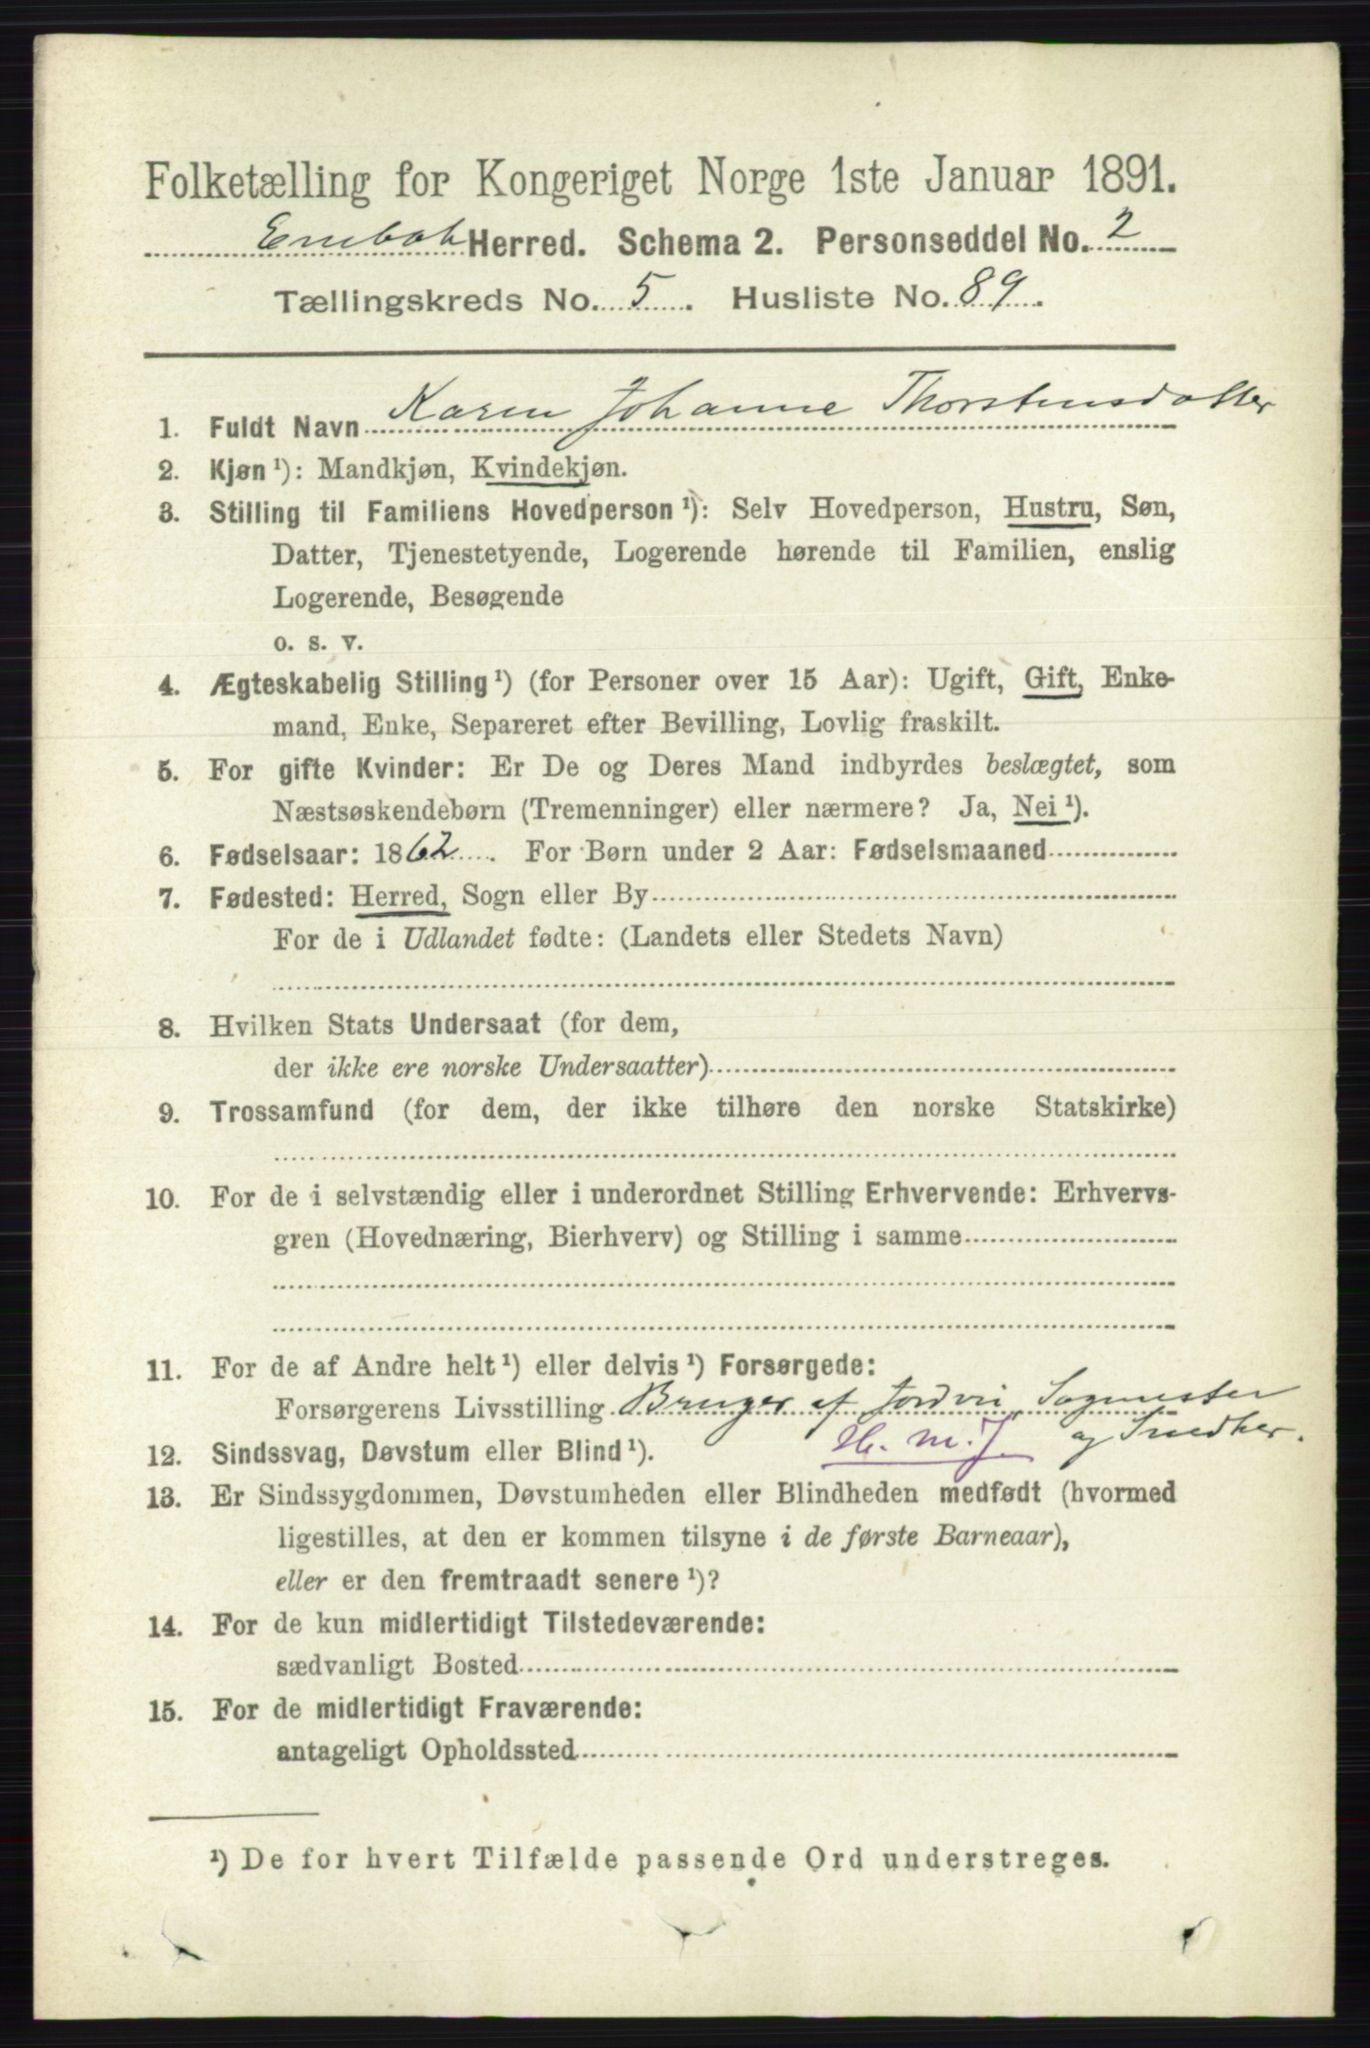 Folketælling for Kongeriget Norge 1ste Januar 1891.
Enebak Herred. Schema 2. Personseddel No. 2
Tællingskreds No. 5. Husliste No. 89.
1. Fuldt Navn Karen Johanne Thorstensdatter
2. Kjøn ¹): Mandkjøn, Kvindekjøn.
3. Stilling til Familiens Hovedperson ¹): Selv Hovedperson, Hustru, Søn,
Datter, Tjenestetyende, Logerende hørende til Familien, enslig
Logerende, Besøgende
o. s. v.
4. Ægteskabelig Stilling ¹) (for Personer over 15 Aar): Ugift, Gift, Enke-
mand, Enke, Separeret efter Bevilling, Lovlig fraskilt.
5. For gifte Kvinder: Er De og Deres Mand indbyrdes beslægtet, som
Næstsøskendebørn (Tremenninger) eller nærmere? Ja, Nei ¹).
6. Fødselsaar: 1862. For Børn under 2 Aar: Fødselsmaaned
7. Fødested: Herred, Sogn eller By
For de i Udlandet fødte: (Landets eller Stedets Navn)
8. Hvilken Stats Undersaat (for dem,
der ikke ere norske Undersaatter)
9. Trossamfund (for dem, der ikke tilhøre den norske Statskirke)
10. For de i selvstændig eller i underordnet Stilling Erhvervende: Erhvervs-
gren (Hovednæring, Bierhverv) og Stilling i samme
11. For de af Andre helt ¹) eller delvis ¹) Forsørgede:
Forsørgerens Livsstilling Bruger af Jordvei, Sagmester
og Snedker.
H. m. J.
12. Sindssvag, Døvstum eller Blind ¹).
13. Er Sindssygdommen, Døvstumheden eller Blindheden medfødt (hvormed
ligestilles, at den er kommen tilsyne i de første Barneaar),
eller er den fremtraadt senere ¹)?
14. For de kun midlertidigt Tilstedeværende:
sædvanligt Bosted
15. For de midlertidigt Fraværende:
antageligt Opholdssted
¹) De for hvert Tilfælde passende Ord understreges.